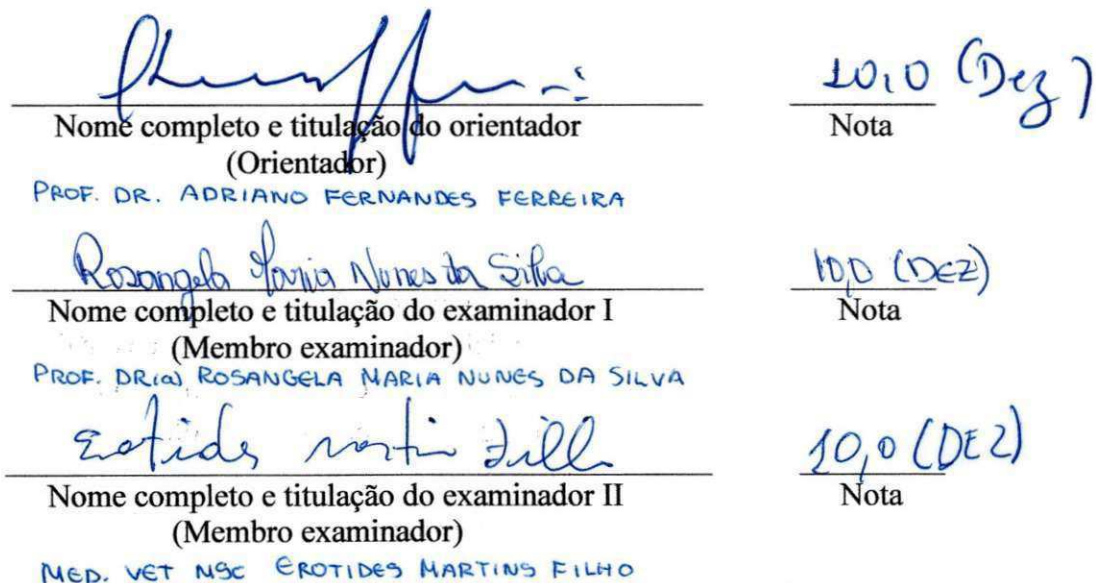 10,0 (Dez)
Nome completo e titulação do orientador Nota
(Orientador)
PROF. DR. ADRIANO FERNANDES FERREIRA
Rosangela Maria Nunes da Silva 10,0 (DEZ)
Nome completo e titulação do examinador I Nota
(Membro examinador)
PROF. DR(a) ROSANGELA MARIA NUNES DA SILVA
Erotides Martins Filho 10,0 (DEZ)
Nome completo e titulação do examinador II Nota
(Membro examinador)
MED. VET MSC EROTIDES MARTINS FILHO